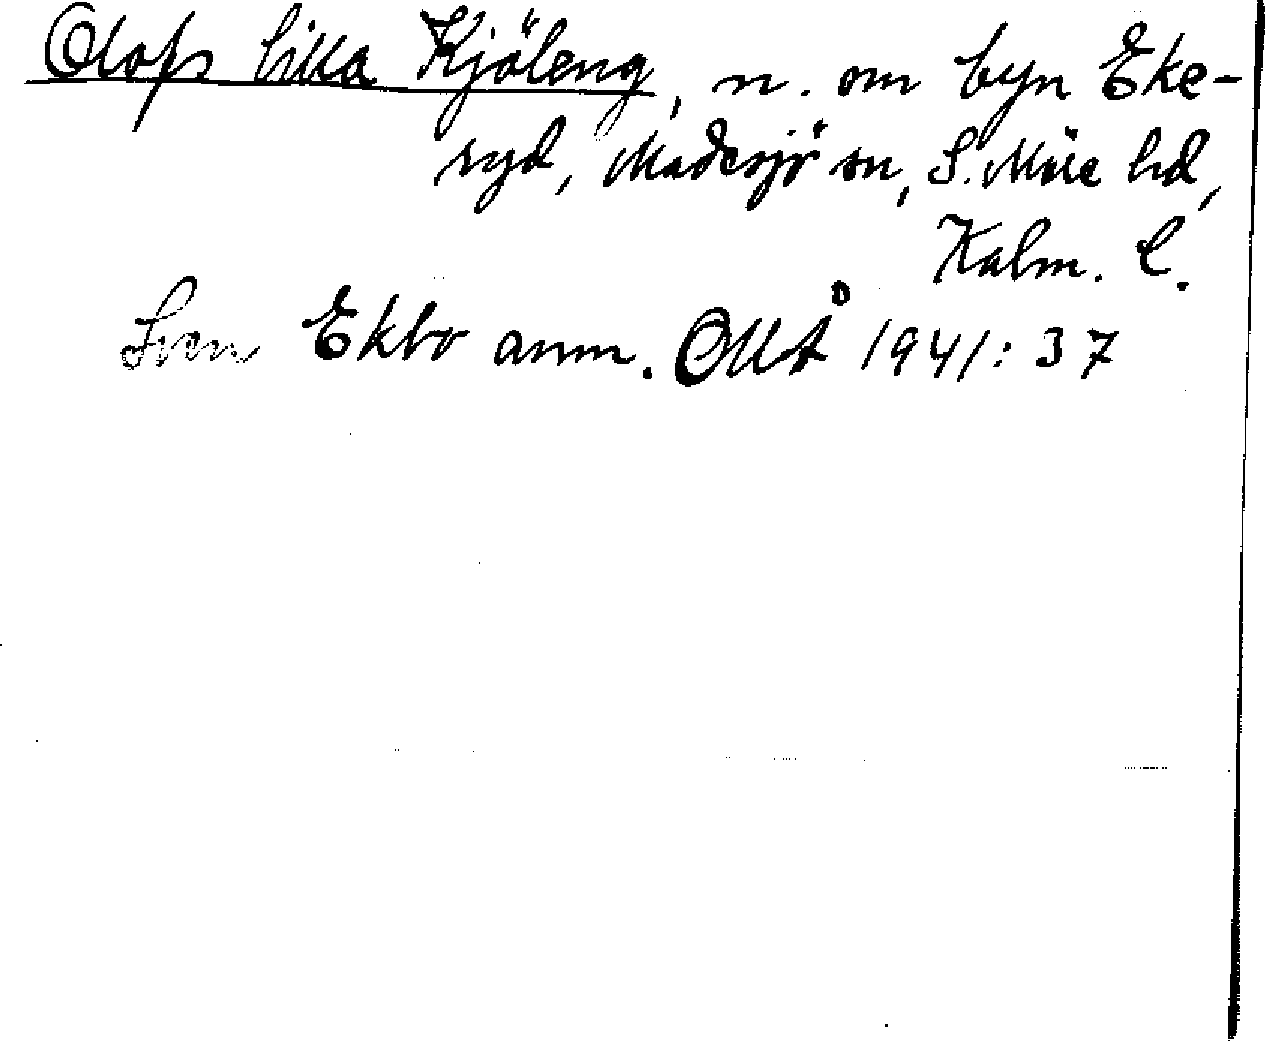 Olofs lilla Kjöleng, n. om byn Eke-
ryd, Madesjö sn, S. Möre hd,
Kalm. l.
Sven Ekbo anm. OUÅ 1941: 37